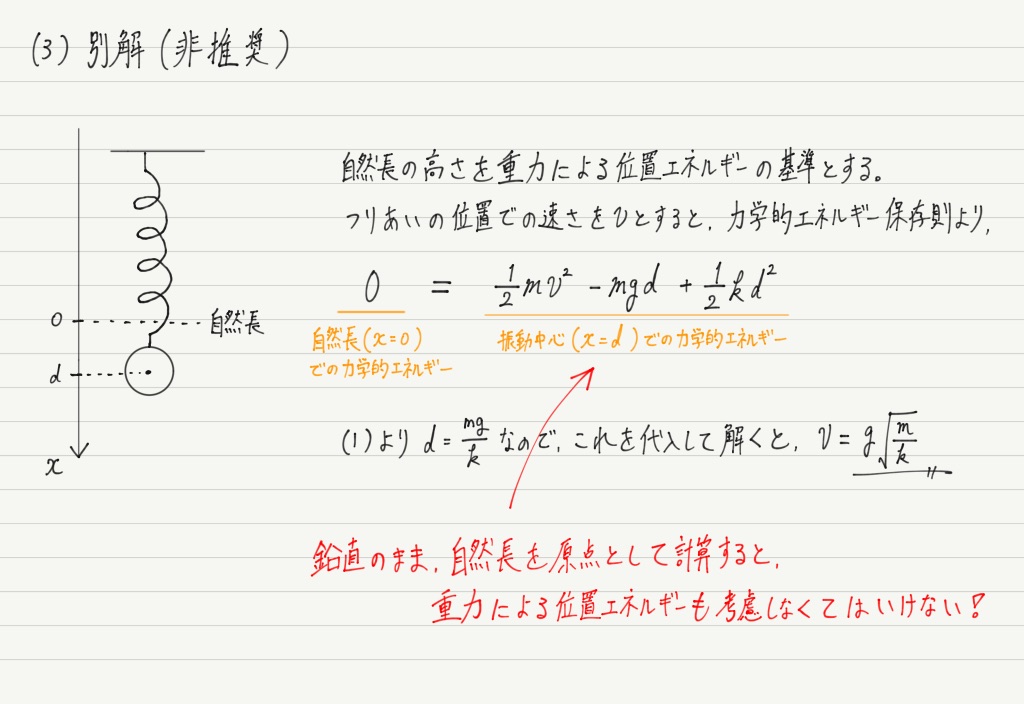 (3) 別解(非推奨)
自然長の高さを重力による位置エネルギーの基準とする。
つりあいの位置での速さをvとすると、力学的エネルギー保存則より、
0 = 1/2 mv² - mgd + 1/2 kd²
自然長(x=0)
での力学的エネルギー
振動中心(x=d)での力学的エネルギー
0
自然長
d
x
(1)より d = mg/k なので、これを代入して解くと、v = g√(m/k)
鉛直のまま、自然長を原点として計算すると、
重力による位置エネルギーも考慮しなくてはいけない!